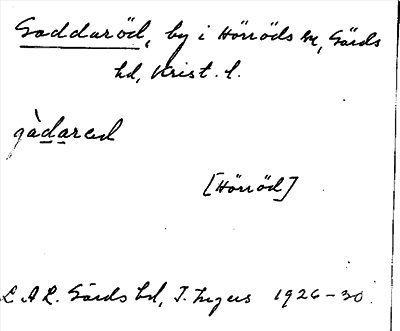 Gaddaröd, by i Hörröds sn, Gärds
hd, Krist. l.
gàdarød
[Hörröd]
L.A.L. Gärds hd, I. Ingers 1926-30.